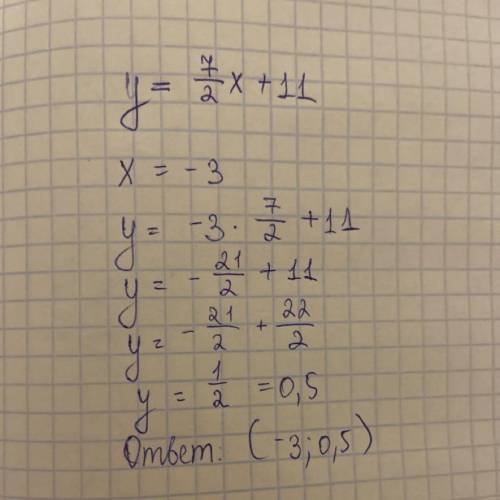 y = 7/2 x + 11
x = -3
y = -3 · 7/2 + 11
y = - 21/2 + 11
y = - 21/2 + 22/2
y = 1/2 = 0,5
Ответ: (-3; 0,5)